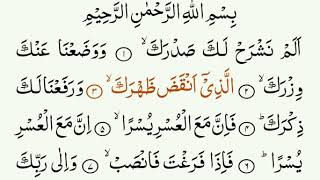 بِسْمِ اللهِ الرَّحْمٰنِ الرَّحِيْمِ
اَلَمْ نَشْرَحْ لَكَ صَدْرَكَ ۙ﴿۱﴾ وَوَضَعْنَا عَنْكَ
وِزْرَكَ ۙ﴿۲﴾ الَّذِیْۤ اَنْقَضَ ظَهْرَكَ ۙ﴿۳﴾ وَرَفَعْنَا لَكَ
ذِكْرَكَ ؕ﴿۴﴾ فَاِنَّ مَعَ الْعُسْرِ يُسْرًا ۙ﴿۵﴾ اِنَّ مَعَ الْعُسْرِ
يُسْرًا ؕ﴿۶﴾ فَاِذَا فَرَغْتَ فَانْصَبْ ۙ﴿۷﴾ وَاِلٰى رَبِّكَ